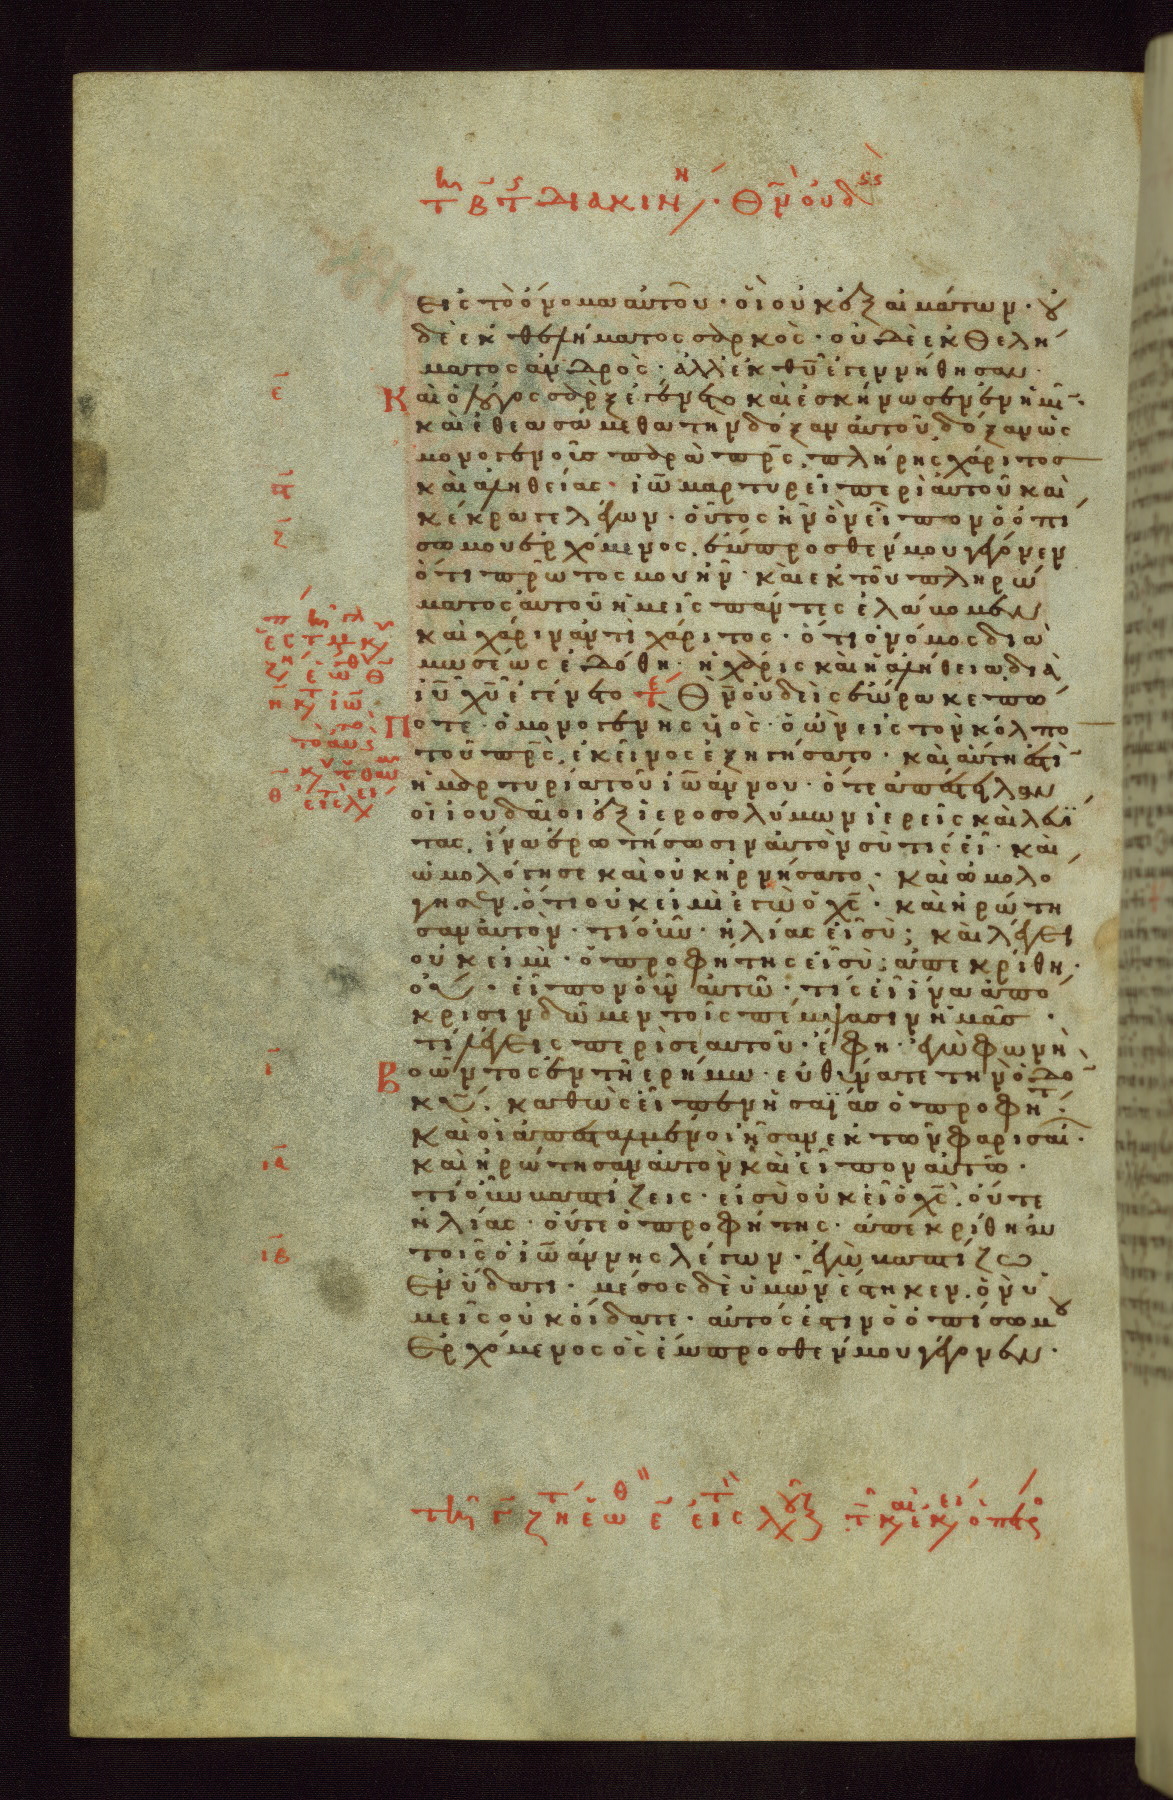 τῇ β τ διακινη · Θν οὐδεις
εἰς τὸ ὄνομα αὐτοῦ · οἳ οὐκ ἐξ αἱμάτων · ου
δὲ ἐκ θελήματος σαρκὸς · οὐδὲ ἐκ θελή
ματος ἀνδρὸς · ἀλλ' ἐκ θυ ἐγεννήθησαν ·
ε Καὶ ὁ λόγος σὰρξ ἐγένετο καὶ ἐσκήνωσεν ἐν ἡμῖν ·
καὶ ἐθεασάμεθα τὴν δόξαν αὐτοῦ δόξαν ὡς
μονογενοῦς παρὰ πρς, πλήρης χάριτος
ϛ καὶ ἀληθείας · ἰω μαρτυρεῖ περὶ αὐτοῦ καὶ
κέκραγε λέγων · οὗτος ἦν ὃν εἶπον ὁ ὀπί
ζ σω μου ἐρχόμενος, ἔμπροσθέν μου γέγονεν
ὅτι πρῶτός μου ἦν · καὶ ἐκ τοῦ πληρώ
ματος αὐτοῦ ἡμεῖς πάντες ἐλάβομεν
καὶ χάριν ἀντὶ χάριτος · ὅτι ὁ νόμος διὰ
μωσέως ἐδόθη · ἡ χάρις καὶ ἡ ἀλήθεια διὰ
ιυ χυ ἐγένετο τε Θν οὐδεὶς ἑώρακε πώ
ποτε · ὁ μονογενὴς υἱὸς · ὁ ὢν εἰς τὸν κόλπο
τοῦ πρς, ἐκεῖνος ἐξηγήσατο · καὶ αὕτη ἐστὶν
ἡ μαρτυρία τοῦ ἰωάννου · ὅτε ἀπέστειλαν
οἱ ἰουδαῖοι ἐξ ἱεροσολύμων ἱερεῖς καὶ λευΐ
τας, ἵνα ἐρωτήσωσιν αὐτὸν σὺ τίς εἶ · καὶ
ὡμολόγησε καὶ οὐκ ἠρνήσατο · καὶ ὡμολό
γησεν, ὅτι οὐκ εἰμὶ ἐγὼ ὁ χς · καὶ ἠρώτη
σαν αὐτὸν · τί οὖν · ἡλίας εἶ σύ; καὶ λέγει
οὐκ εἰμί · ὁ προφήτης εἶ σύ; ἀπεκρίθη ·
οὔ · εἶπον οὖν αὐτῷ · τίς εἶ ἵνα ἀπό
κρισιν δῶμεν τοῖς πέμψασιν ἡμᾶς ·
τί λέγεις περὶ σεαυτοῦ · ἔφη · ἐγὼ φωνὴ
ι Βοῶντος ἐν τῇ ἐρήμω · εὐθύνατε τὴν ὁδὸ
κυ · καθὼς εἶπεν ἡσαΐας ὁ προφήτ ·
καὶ οἱ ἀπεσταλμένοι ἦσαν ἐκ τῶν φαρισαί ·
ια καὶ ἠρώτησαν αὐτὸν καὶ εἶπον αὐτῶ ·
τί οὖν βαπτίζεις · εἰ σὺ οὐκ εἶ ὁ χς, οὔτε
ἡλίας · οὔτε ὁ προφήτης · ἀπεκρίθη αὐ
ιβ τοῖς ὁ ἰωάννης λέγων · ἐγὼ βαπτίζω
ἐν ὕδατι · μέσος δὲ ὑμῶν ἕστηκεν, ὃν ὑ
μεῖς οὐκ οἴδατε · αὐτός ἐστιν ὁ ὀπίσω μου
ἐρχόμενος ὃς ἔμπροσθέν μου γέγονεν ·